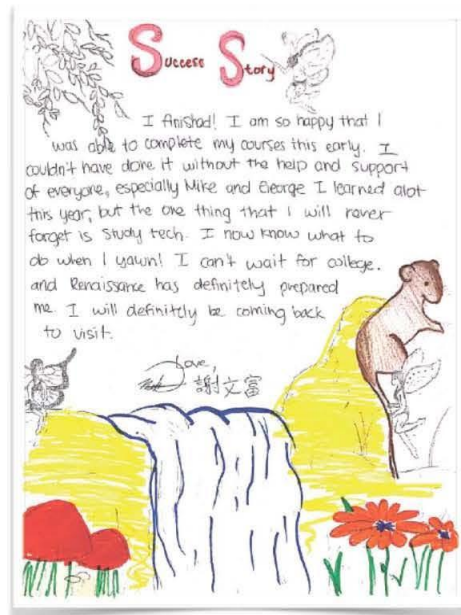 Success Story
I finishad! I am so happy that I
was able to complete my courses this early. I
couldn't have done it without the help and support
of everyone, especially Mike and George I learned alot
this year, but the one thing that I will never
forget is Study tech. I now know what to
do when I yawn! I can't wait for college.
and Renaissance has definitely prepared
me. I will definitly be coming back
to visit.
Love,
謝文富